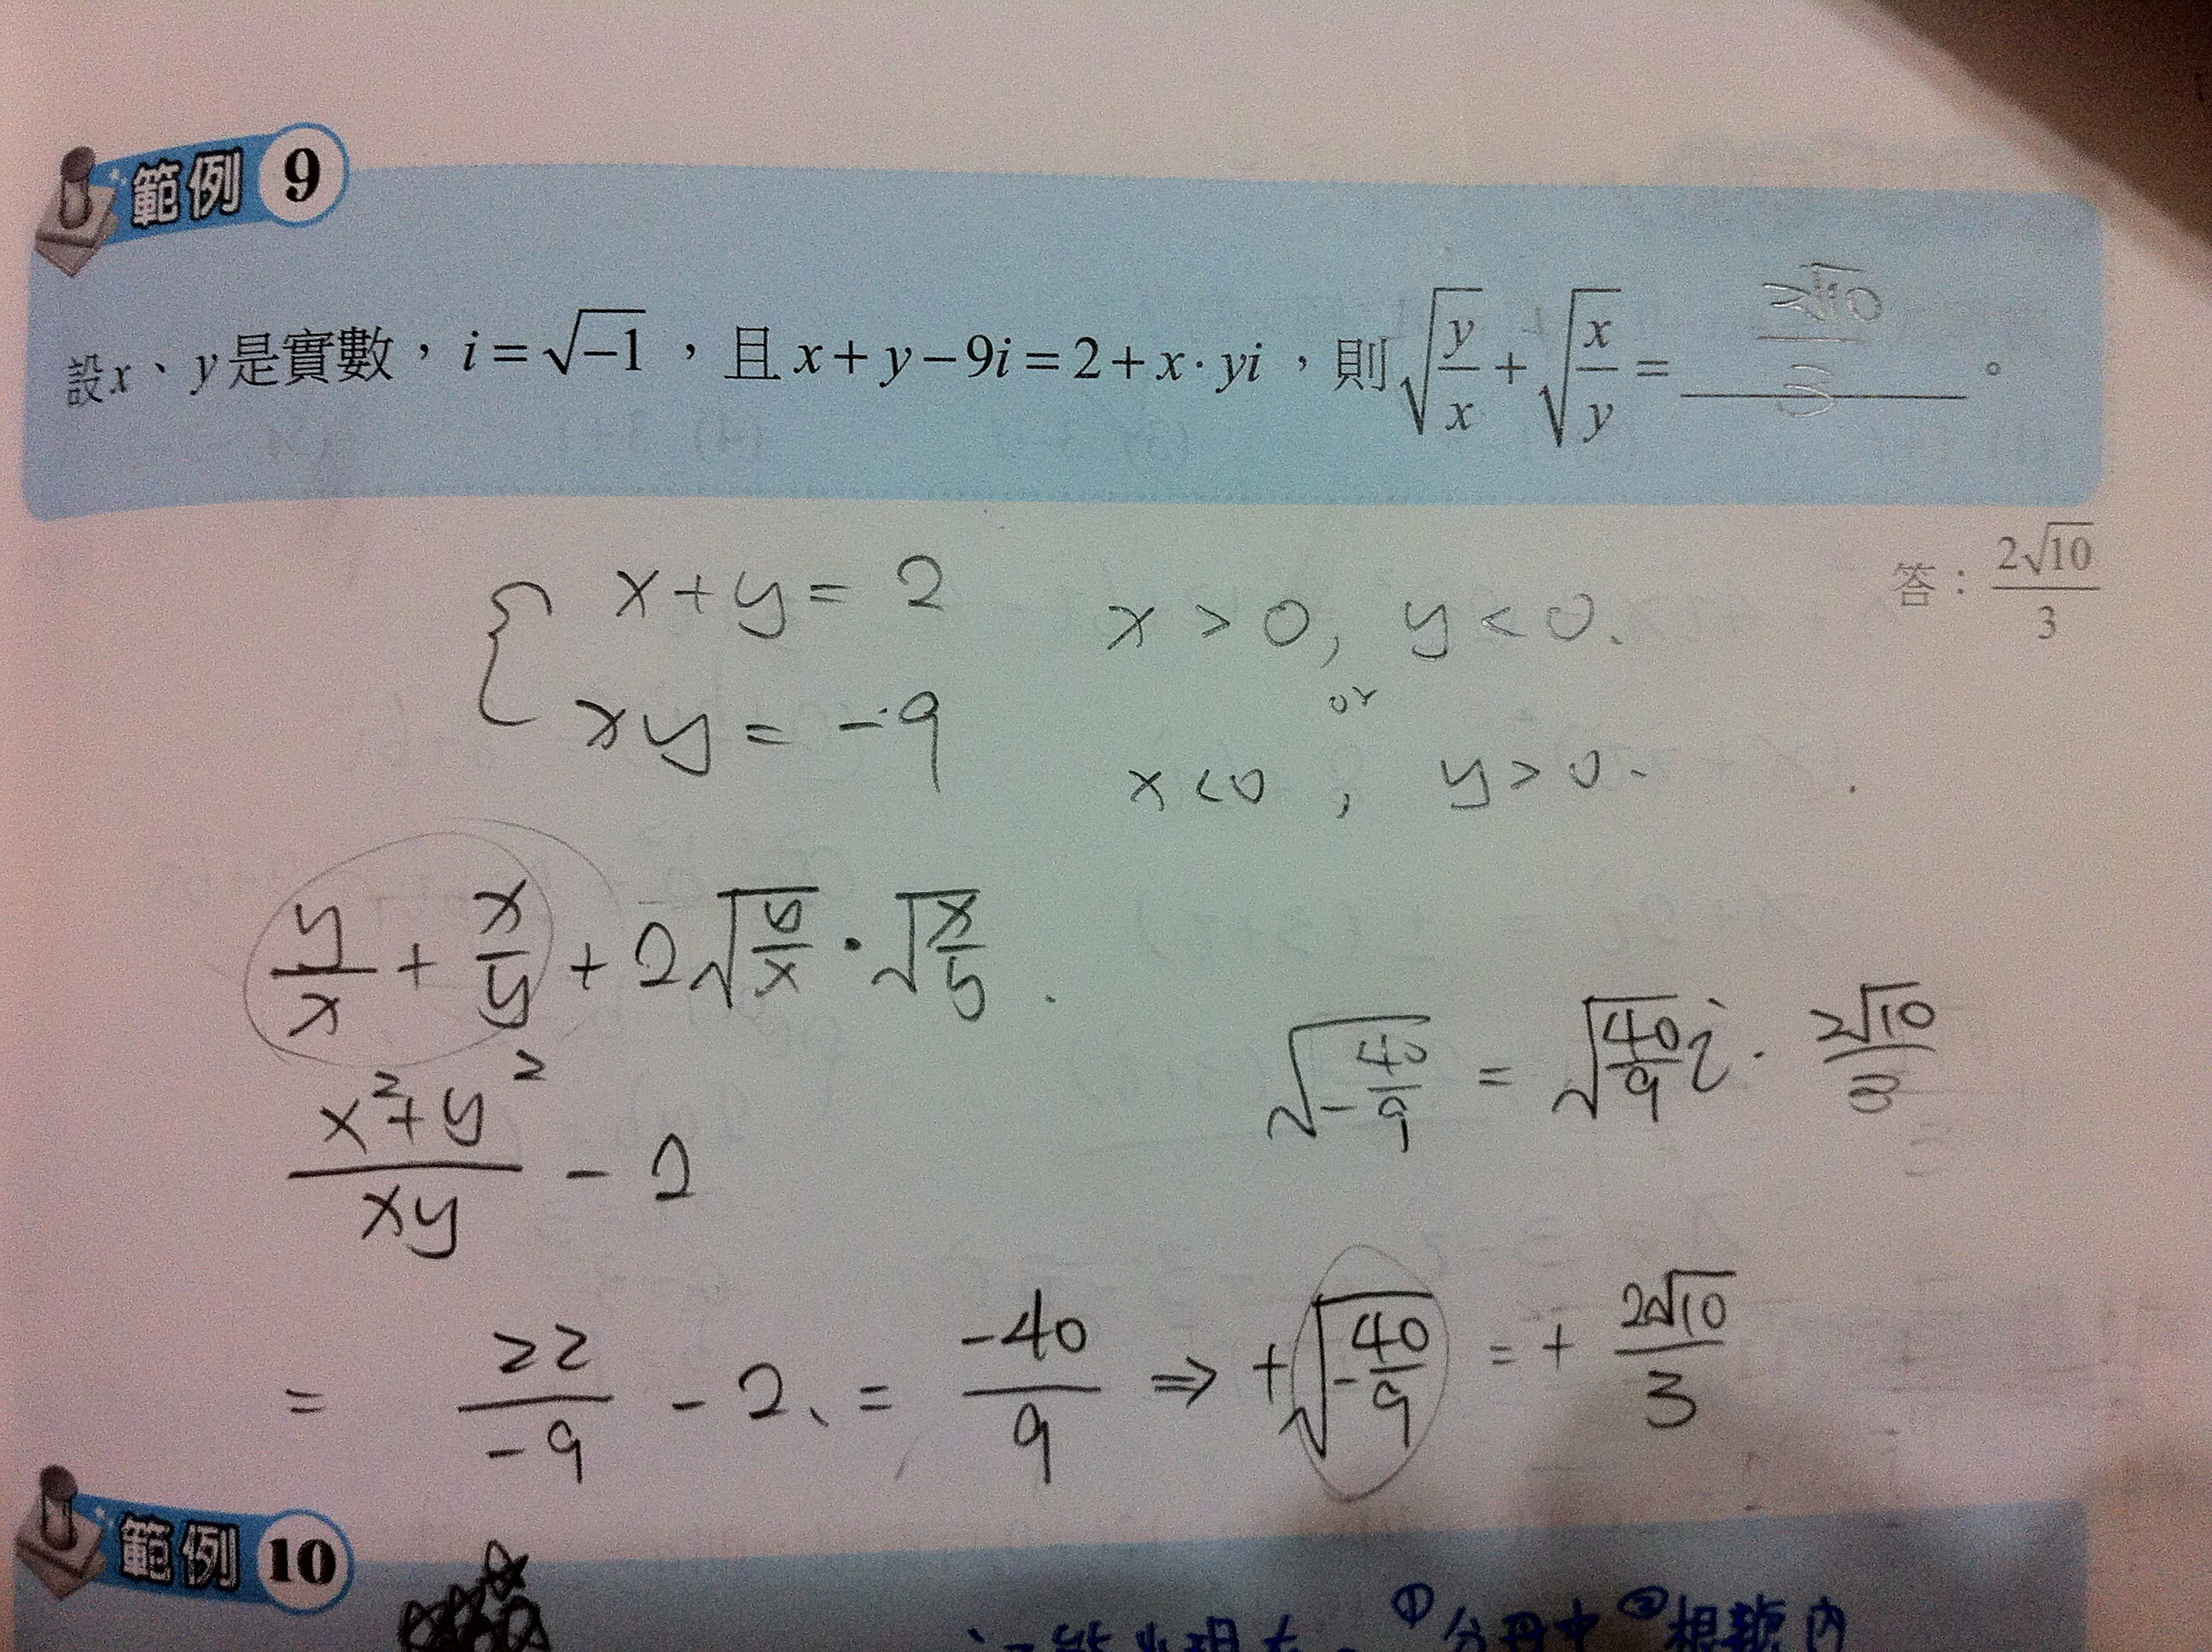 範例 9
設x、y是實數，i=√-1，且x+y-9i=2+x·yi，則√(y/x)+√(x/y)= 2√10/3 。
答：2√10/3
{ x+y=2   x>0, y<0.
or
xy=-9   x<0, y>0.
y/x + x/y + 2√(y/x)·√(x/y).
√(-40/9) = √(40/9) i. 2√10/3
(x²+y²)/(xy) - 2
= 22/-9 - 2、= -40/9 ⇒ +√(-40/9) = + 2√10/3
範例 10
①分母中 ②根號內